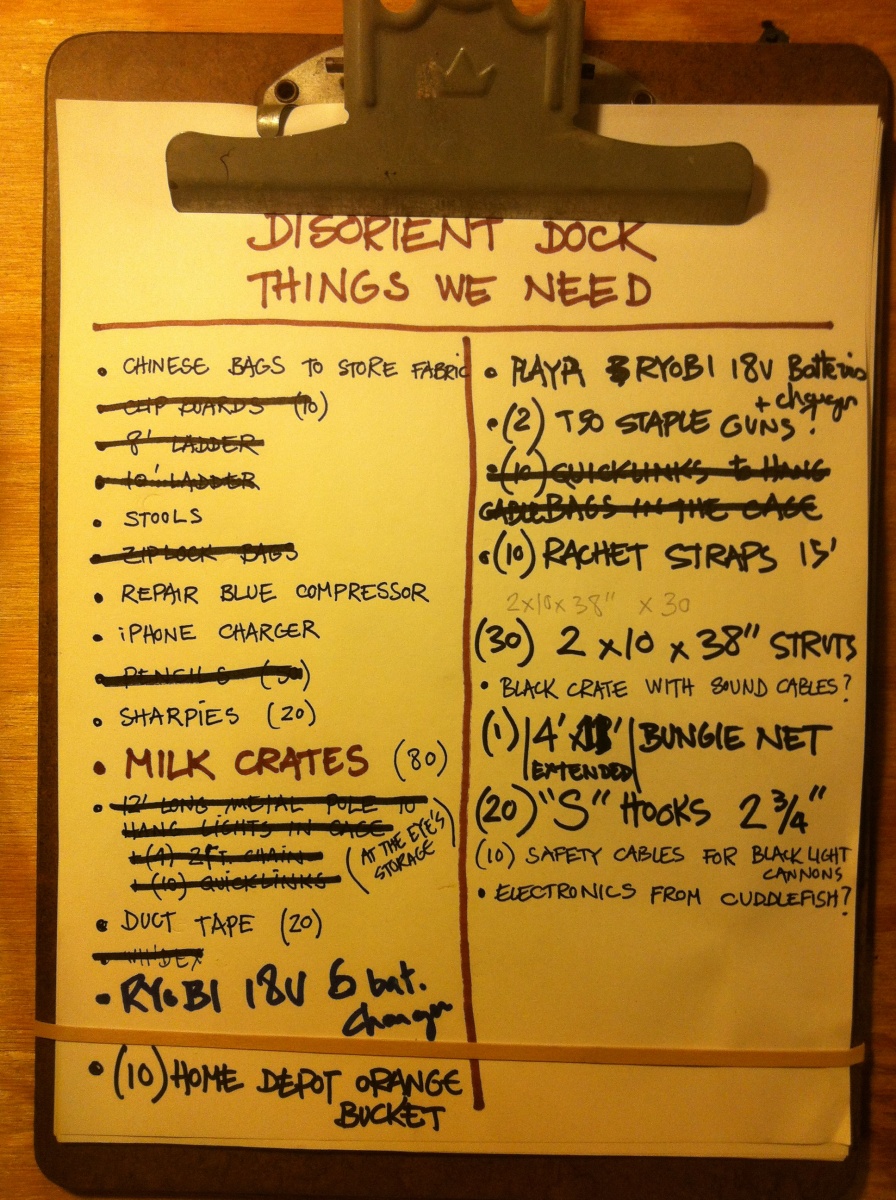 DISORIENT DOCK
THINGS WE NEED
• CHINESE BAGS TO STORE FABRIC
CLIP BOARDS (10)
• 8' LADDER
• 10' LADDER
• STOOLS
• ZIPLOCK BAGS
• REPAIR BLUE COMPRESSOR
• iPHONE CHARGER
• PENCILS
• SHARPIES (20)
• MILK CRATES (80)
• 12' LONG METAL POLE TO
HANG LIGHTS IN CAGE
+ (4) 2FT. CHAIN
+ (10) QUICKLINKS
(AT THE EYE'S
STORAGE)
• DUCT TAPE (20)
• WINDEX
• RYOBI 18V 6 bat.
charger
• (10) HOME DEPOT ORANGE
BUCKET
• PLAYA RYOBI 18V Batteries
+ charger
• (2) T50 STAPLE GUNS?
• (10) QUICKLINKS to HANG
CABLE BAGS IN THE CAGE
• (10) RACHET STRAPS 15'
2x10x38" x 30
(30) 2 x10 x 38" STRUTS
• BLACK CRATE WITH SOUND CABLES?
(1) 4' BUNGIE NET
EXTENDED
(20) "S" HOOKS 2 3/4"
(10) SAFETY CABLES FOR BLACK LIGHT
CANNONS
• ELECTRONICS FROM CUDDLEFISH?